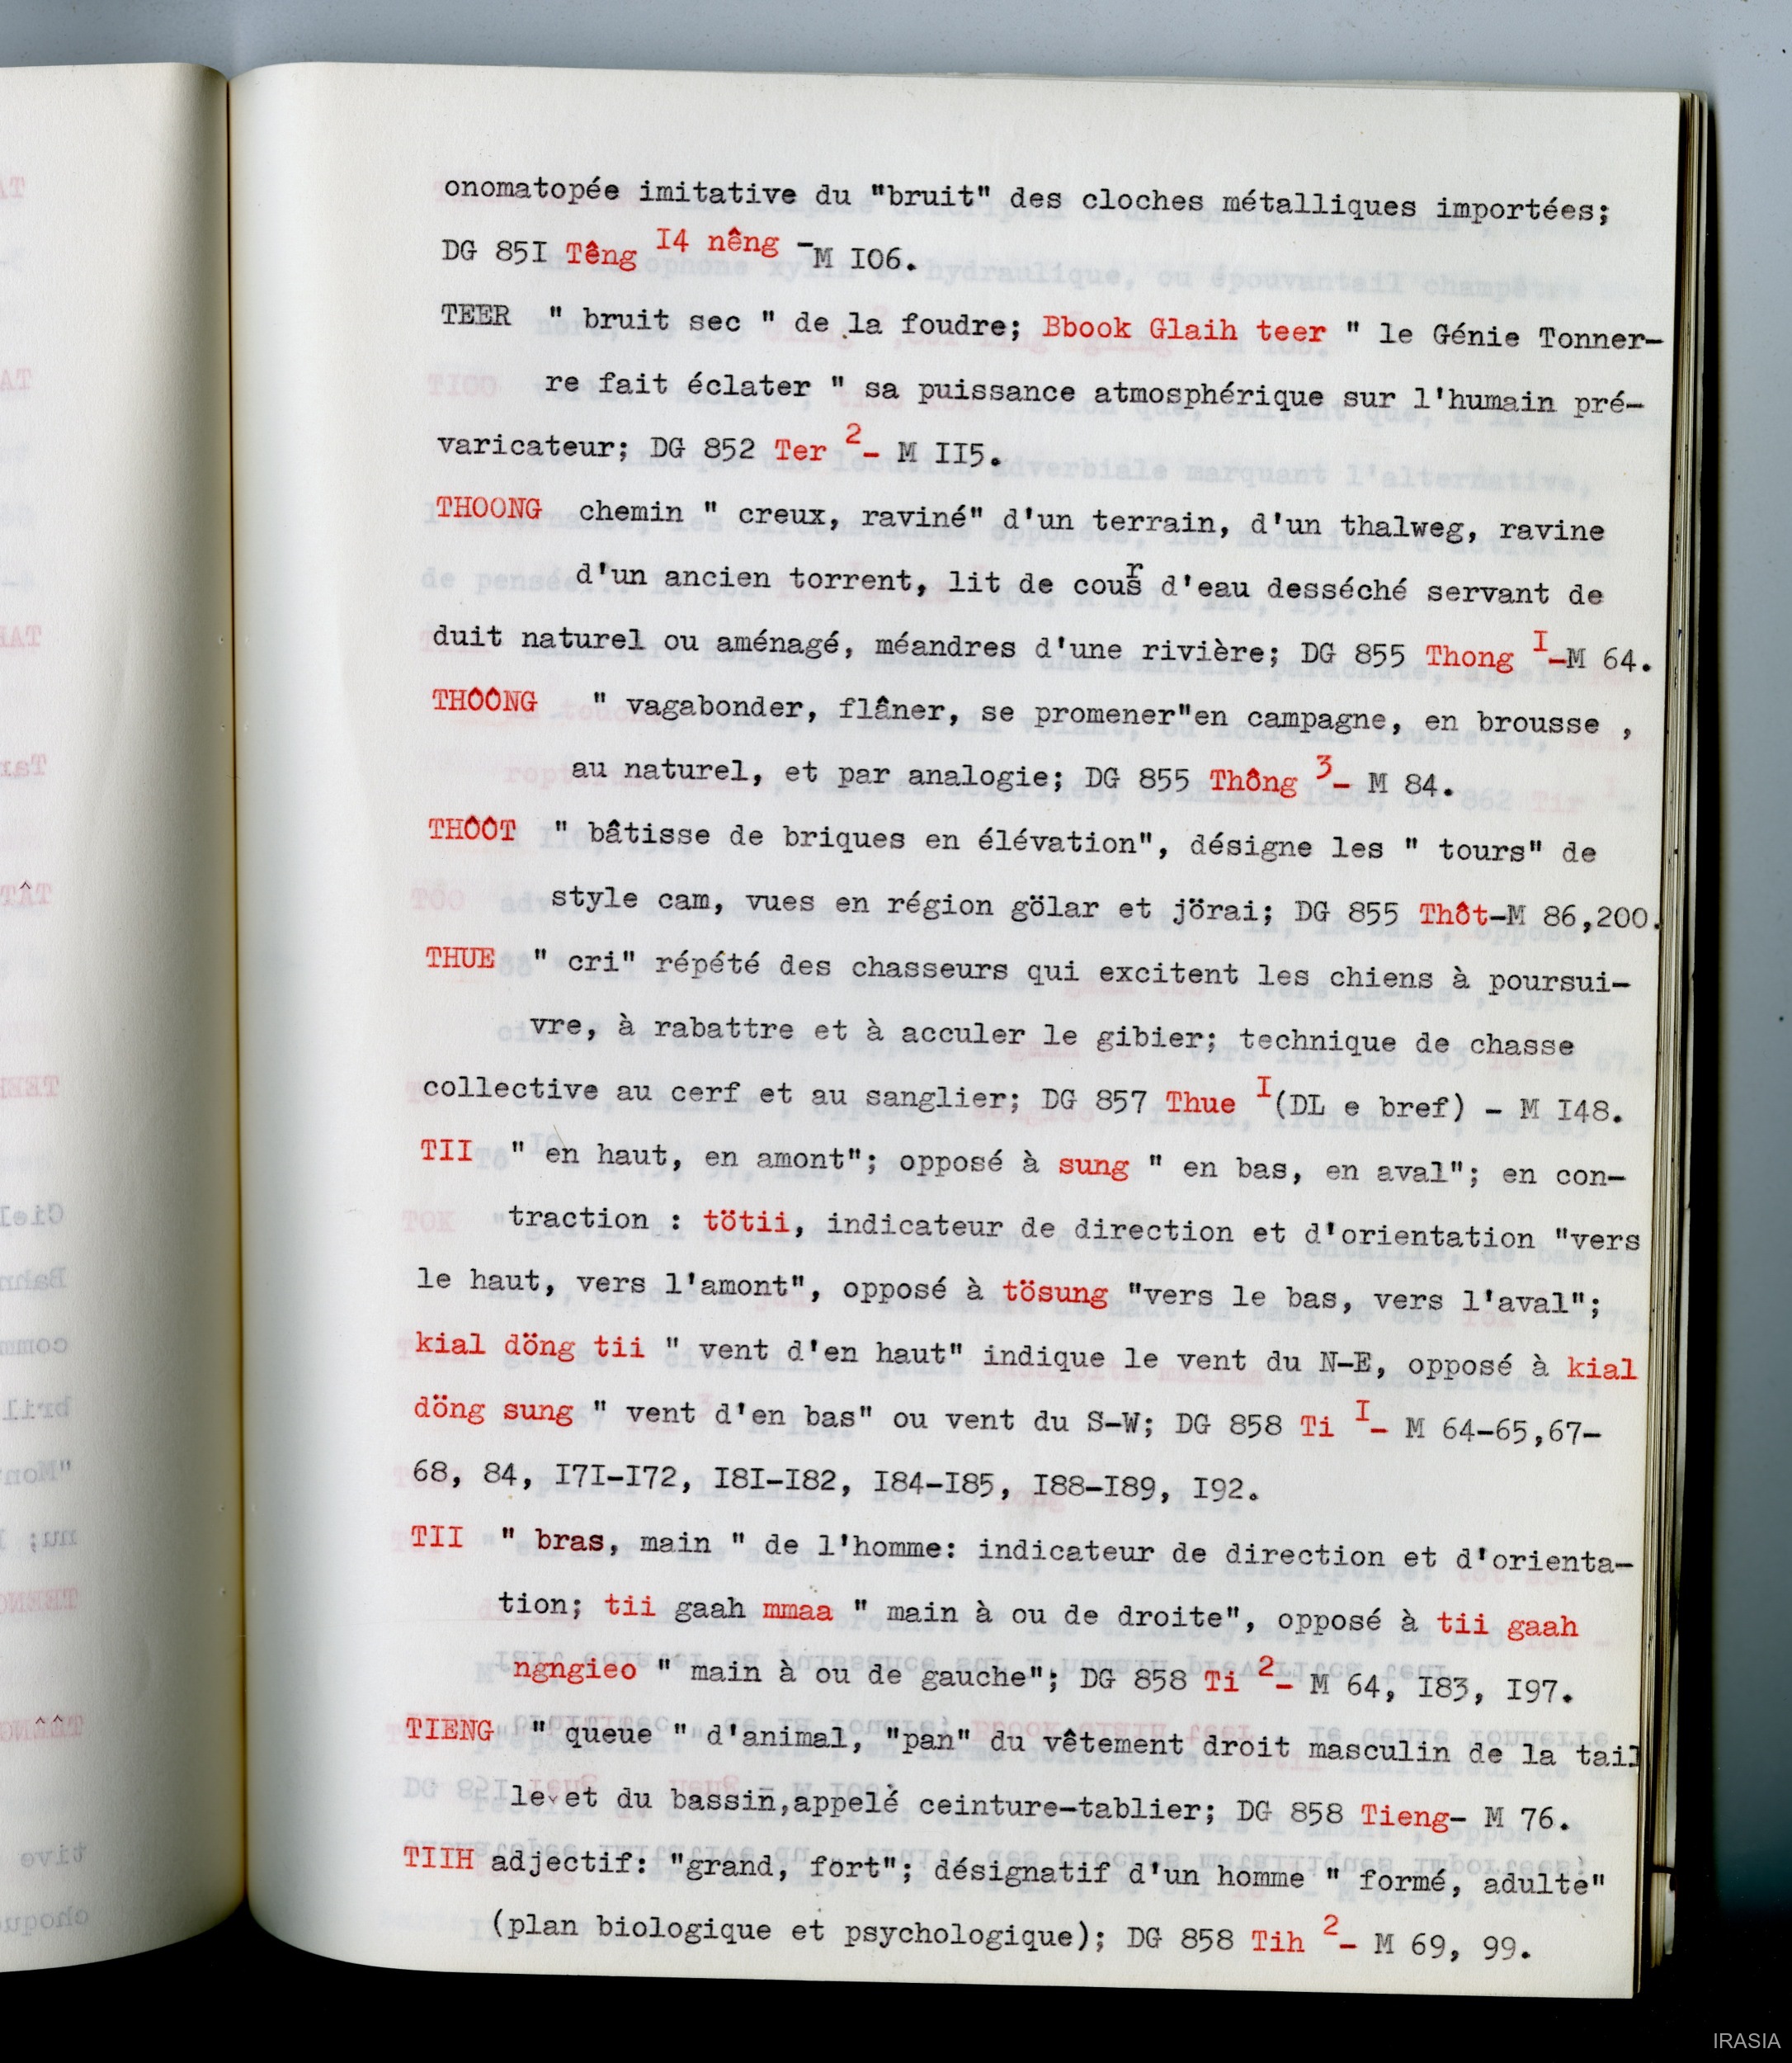 onomatopée imitative du "bruit" des cloches métalliques importées;
DG 85I Têng I4 nêng -M I06.
TEER " bruit sec " de la foudre; Bbook Glaih teer " le Génie Tonner-
re fait éclater " sa puissance atmosphérique sur l'humain pré-
varicateur; DG 852 Ter 2- M II5.
THOONG chemin " creux, raviné" d'un terrain, d'un thalweg, ravine
d'un ancien torrent, lit de cours d'eau desséché servant de
duit naturel ou aménagé, méandres d'une rivière; DG 855 Thong I-M 64.
THÔÔNG " vagabonder, flâner, se promener"en campagne, en brousse ,
au naturel, et par analogie; DG 855 Thông 3- M 84.
THÔÔT " bâtisse de briques en élévation", désigne les " tours" de
style cam, vues en région gölar et jörai; DG 855 Thôt-M 86,200.
THUE " cri" répété des chasseurs qui excitent les chiens à poursui-
vre, à rabattre et à acculer le gibier; technique de chasse
collective au cerf et au sanglier; DG 857 Thue I(DL e bref) - M I48.
TII " en haut, en amont"; opposé à sung " en bas, en aval"; en con-
traction : tötii, indicateur de direction et d'orientation "vers
le haut, vers l'amont", opposé à tösung "vers le bas, vers l'aval";
kial döng tii " vent d'en haut" indique le vent du N-E, opposé à kial
döng sung " vent d'en bas" ou vent du S-W; DG 858 Ti I- M 64-65,67-
68, 84, I7I-I72, I8I-I82, I84-I85, I88-I89, I92.
TII " bras, main " de l'homme: indicateur de direction et d'orienta-
tion; tii gaah mmaa " main à ou de droite", opposé à tii gaah
ngngieo " main à ou de gauche"; DG 858 Ti 2- M 64, I83, I97.
TIENG " queue " d'animal, "pan" du vêtement droit masculin de la tail
le et du bassin,appelé ceinture-tablier; DG 858 Tieng- M 76.
TIIH adjectif: "grand, fort"; désignatif d'un homme " formé, adulte"
(plan biologique et psychologique); DG 858 Tih 2- M 69, 99.
IRASIA